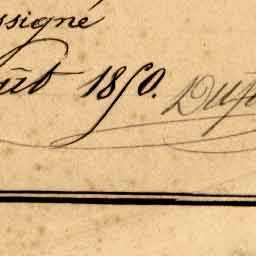 ssigné
ût 1850.